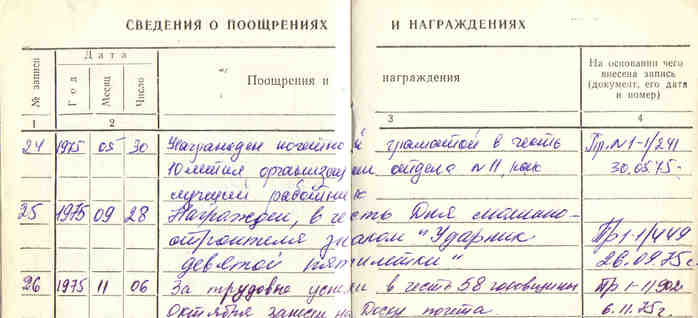 СВЕДЕНИЯ О ПООЩРЕНИЯХ И НАГРАЖДЕНИЯХ
№ записи
Дата
Год
Месяц
Число
Поощрения и награждения
На основании чего
внесена запись
(документ, его дата
и номер)
1 2 3 4
24 1975 05 30 Награжден почетной грамотой в честь Пр.N1-1/241
10летия организации отдела N11, как 30.0575г
лучший работник
25 1975 09 28 Награжден, в честь Дня машино-
строителя знаком "Ударник Пр1-1/449
девятой пятилетки" 26.09.75г.
26 1975 11 06 За трудовые успехи в честь 58 годовщины Пр 1-1
Октября занесен на Доску почета 6.11.75г.